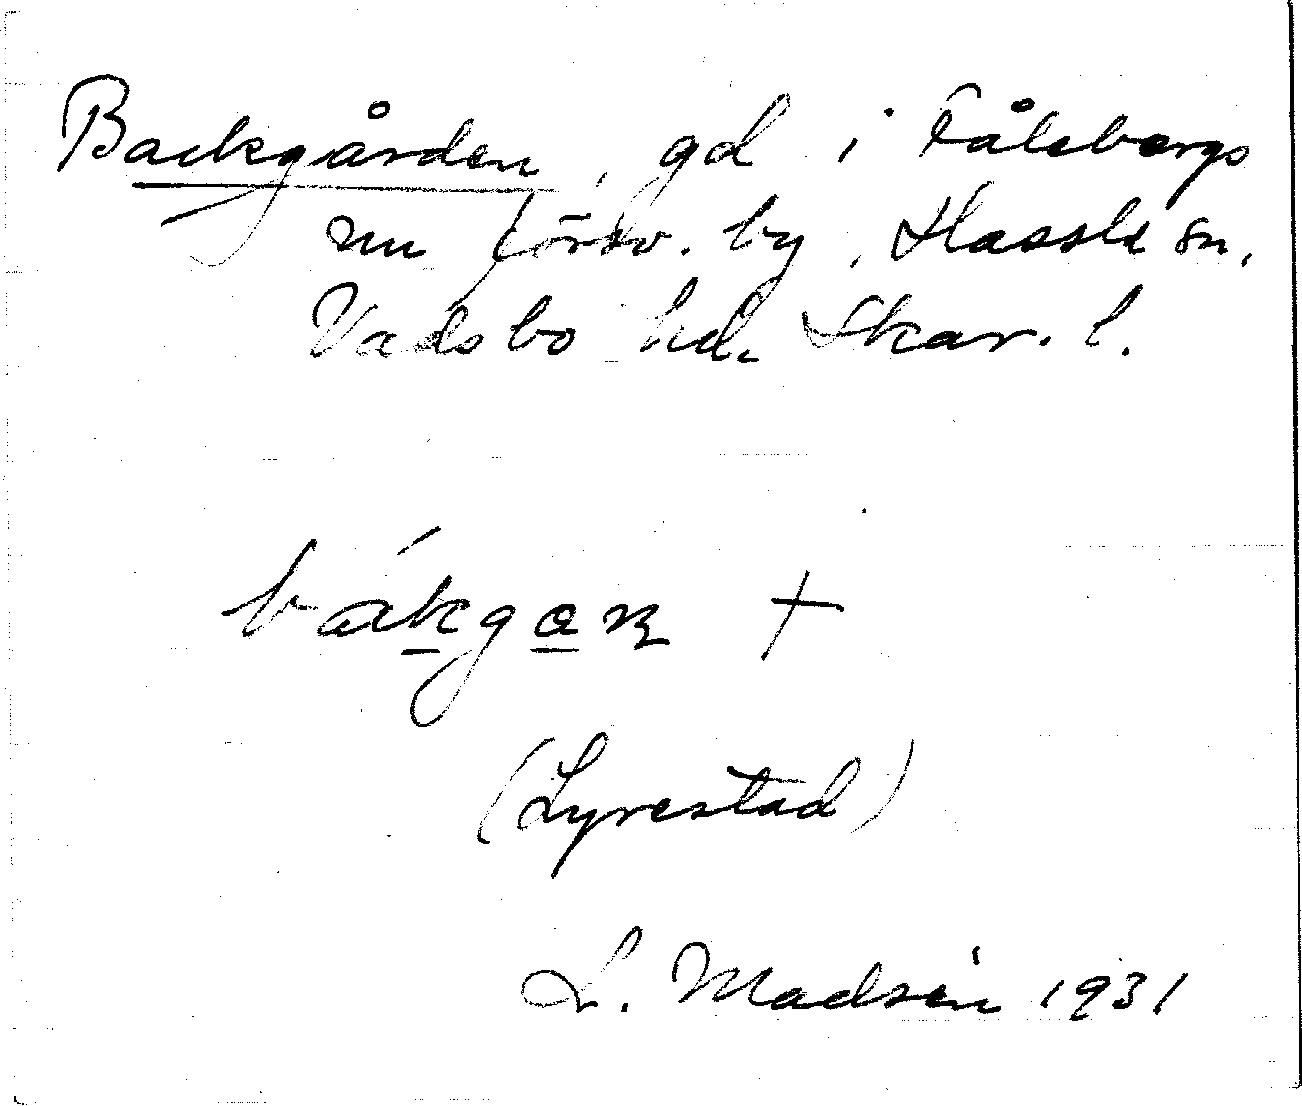 Backgården, gd i Fålebergs
nu försv. by, Hassle sn,
Vadsbo hd. Skar. l.
bákgan +
(Lyrestad)
L. Madsén 1931